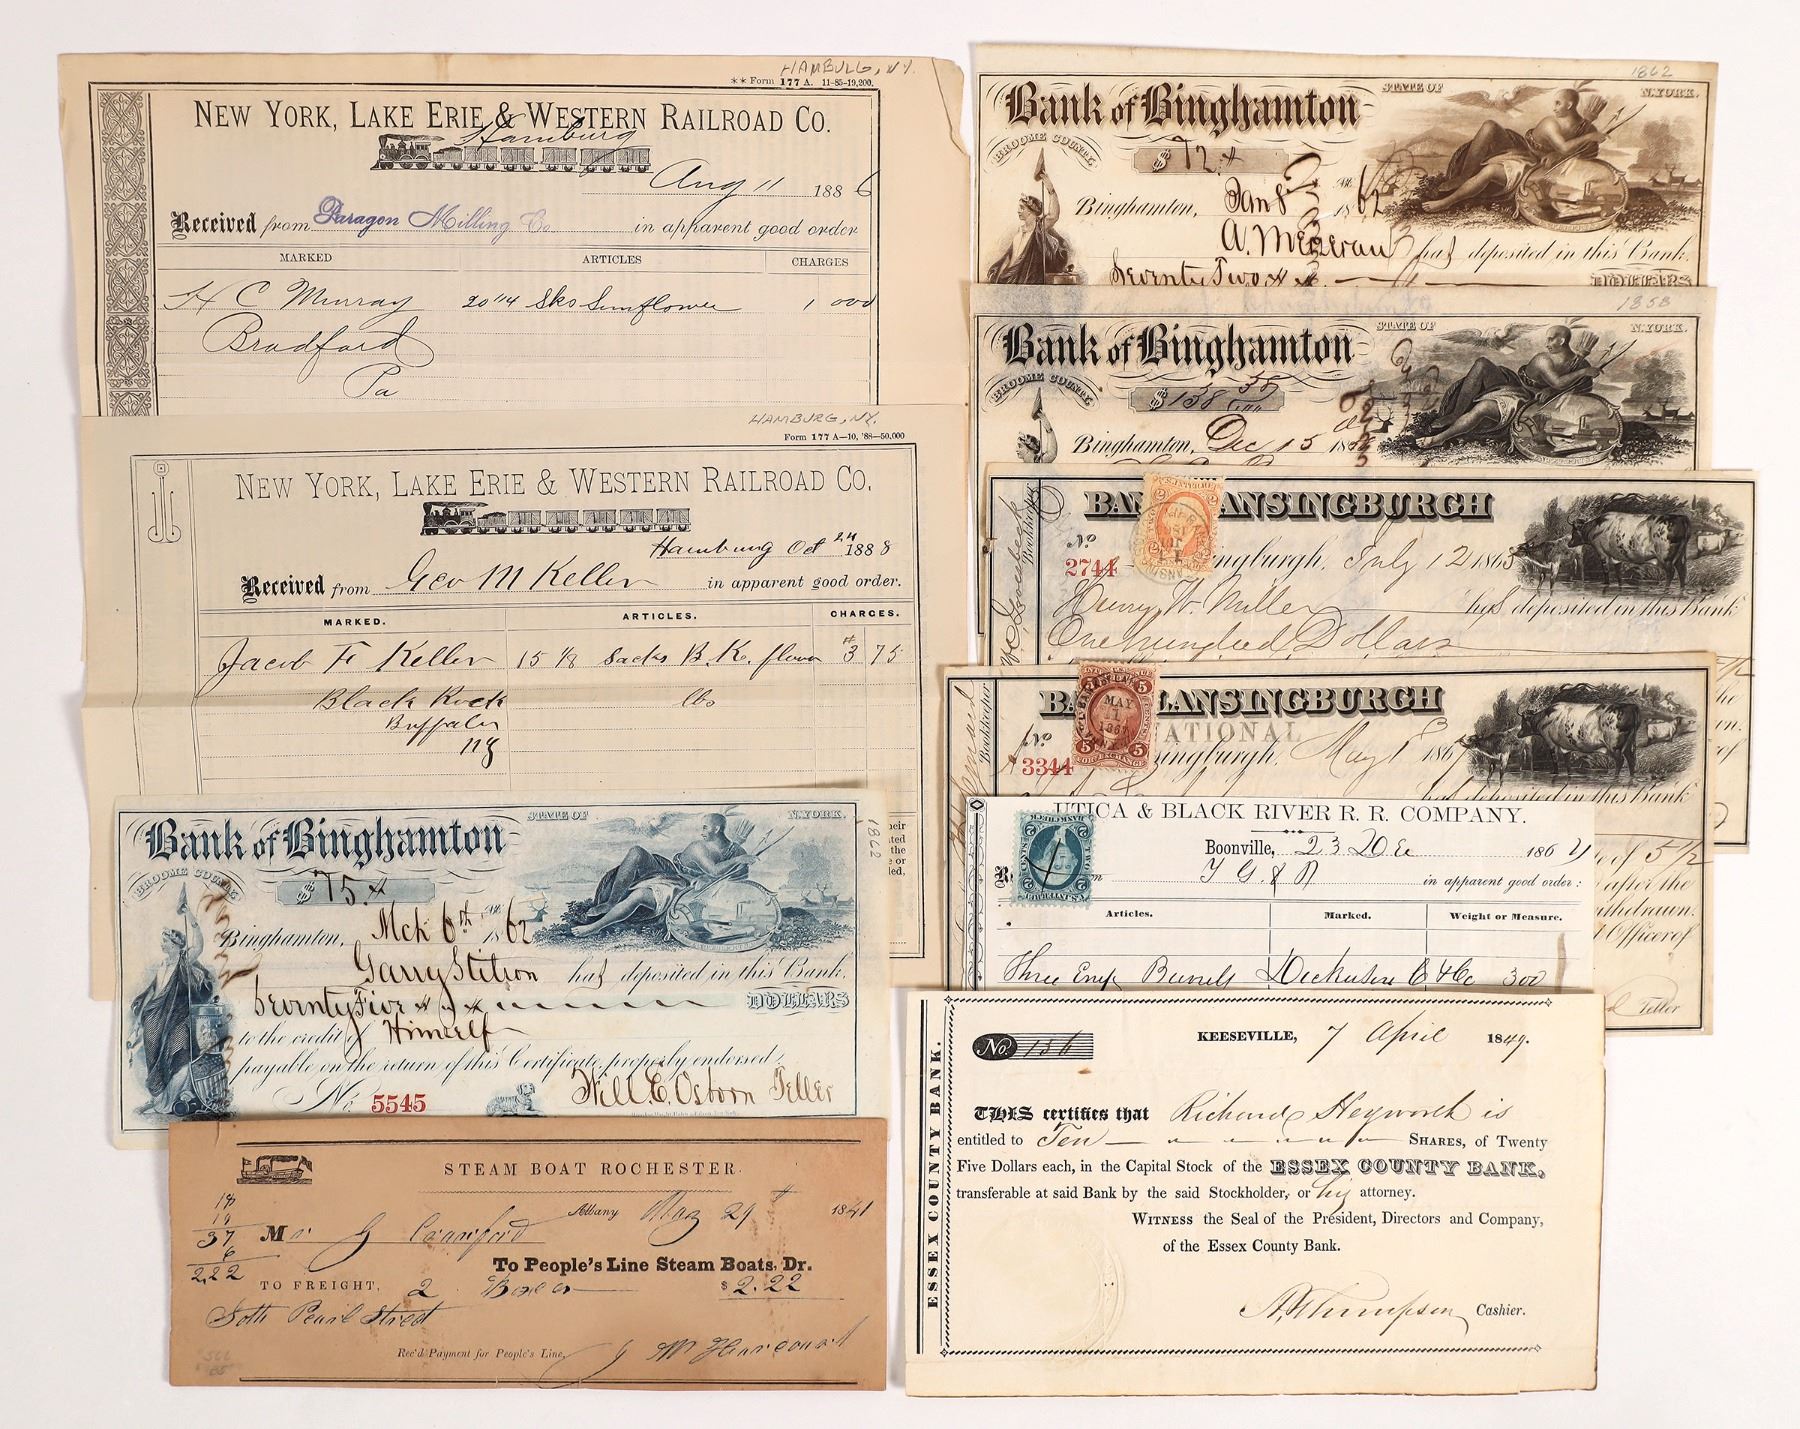 HAMBURG, NY.
** Form 177 A. 11-85-19,200.
NEW YORK, LAKE ERIE & WESTERN RAILROAD CO.
Hamburg
Aug 11 1886
Received from Paragon Milling Co in apparent good order
MARKED ARTICLES CHARGES
H C Murray 20 1/4 Sks Sunflower 1 000
Bradford
Pa
HAMBURG, NY.
Form 177 A—10, '88—50,000
NEW YORK, LAKE ERIE & WESTERN RAILROAD CO.
Hamburg Oct 24 1888
Received from Geo M Keller in apparent good order.
MARKED. ARTICLES. CHARGES.
Jacob F Keller 15 1/8 Sacks B. K. flour $3 75
Black Rock lbs
Buffalo
NY
1862
Bank of Binghamton
STATE OF N.YORK.
BROOME COUNTY.
$ 75
Binghamton, Mch 6th 1862
Garry Stilson has deposited in this Bank
Seventy Five DOLLARS
to the credit of Himself
payable on the return of this Certificate, properly endorsed.
No. 5545 Will C. Osborn Teller
STEAM BOAT ROCHESTER.
18
19
37
6
2,22
Albany Mar 29th 1841
Mr G Crawford
To People's Line Steam Boats, Dr.
TO FREIGHT, 2 Boxes $2.22
South Pearl Street
Rec'd Payment for People's Line,
1862
Bank of Binghamton
STATE OF N.YORK.
BROOME COUNTY.
$ 72
Binghamton, Jan 8 1862
has deposited in this Bank
Seventy Two DOLLARS
1858
Bank of Binghamton
STATE OF N.YORK.
BROOME COUNTY.
$ 138 58/100
Binghamton, Dec 15 1858
BAN LANSINGBURGH
Bookkeeper
No 2744
ingburgh, July 12 1865
Henry W. Miller has deposited in this Bank
One hundred Dollars
BAN LANSINGBURGH
NATIONAL
Bookkeeper
No 3344
singburgh, May 1 186
has deposited in this Bank
of 5 1/2
after the
ithdrawn.
Officer of
Teller
MAY
1
5 5
UTICA & BLACK RIVER R. R. COMPANY.
Boonville, 23 De 1864
in apparent good order:
Articles. Marked. Weight or Measure.
Three Emp Barrels Dickinson C & Co 300
ESSEX COUNTY BANK.
No. 156 KEESEVILLE, 7 April 1849.
THIS certifies that Richard Heyworth is
entitled to Ten SHARES, of Twenty
Five Dollars each, in the Capital Stock of the ESSEX COUNTY BANK,
transferable at said Bank by the said Stockholder, or his attorney.
WITNESS the Seal of the President, Directors and Company,
of the Essex County Bank.
Thompson Cashier.